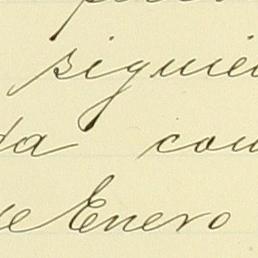 siguie
da con
de Enero